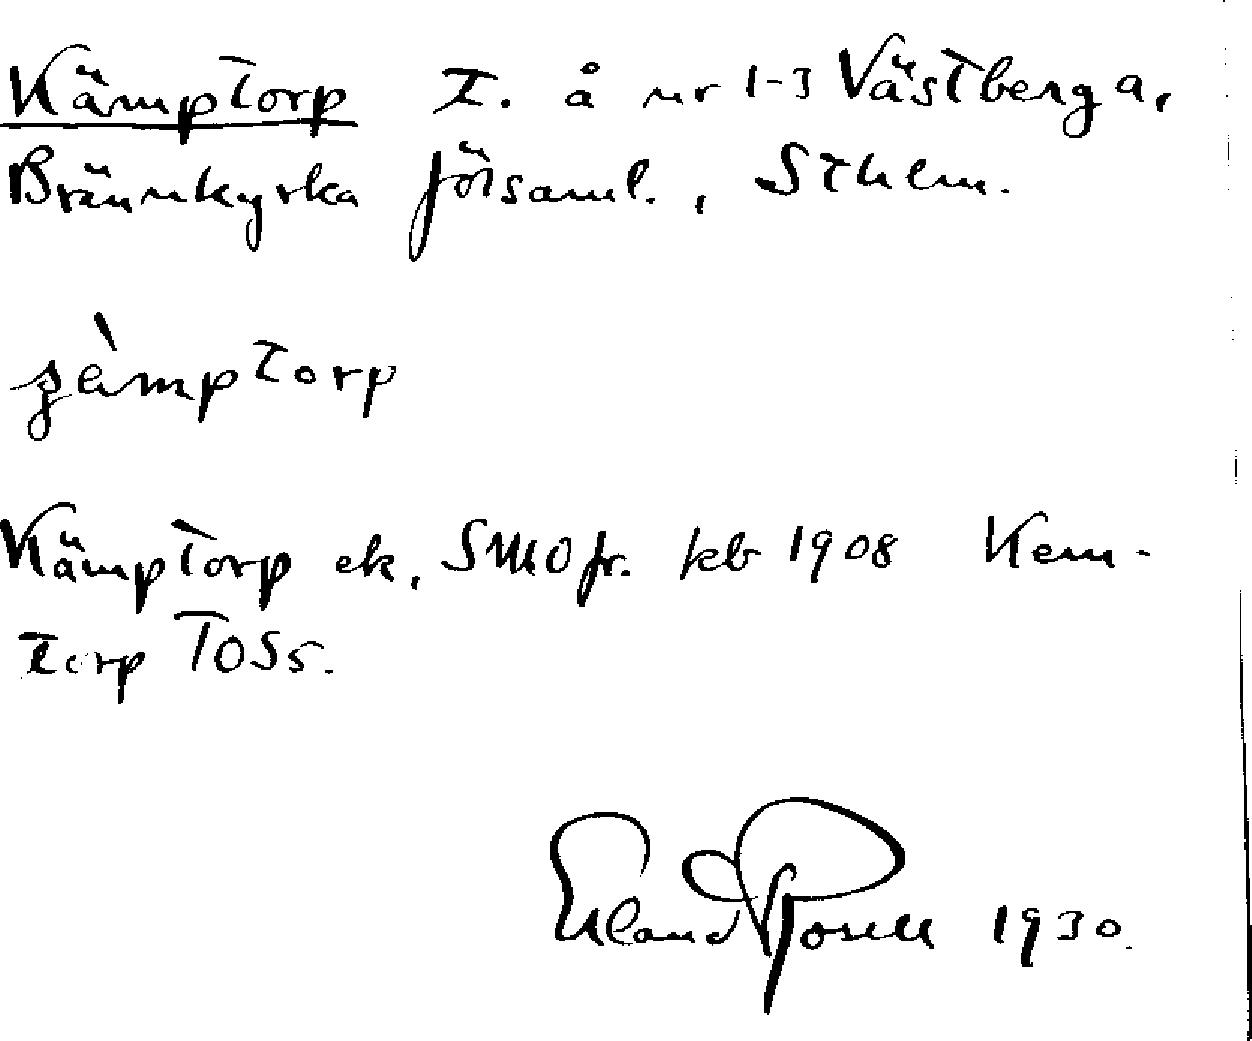 Kämptorp T. å nr 1-3 Västberga,
Brännkyrka församl., Sthlm.
kämptorp
Kämptorp ek, SMO fr. keb 1908 Kem-
torp TOSs.
Erland Rosell 1930.